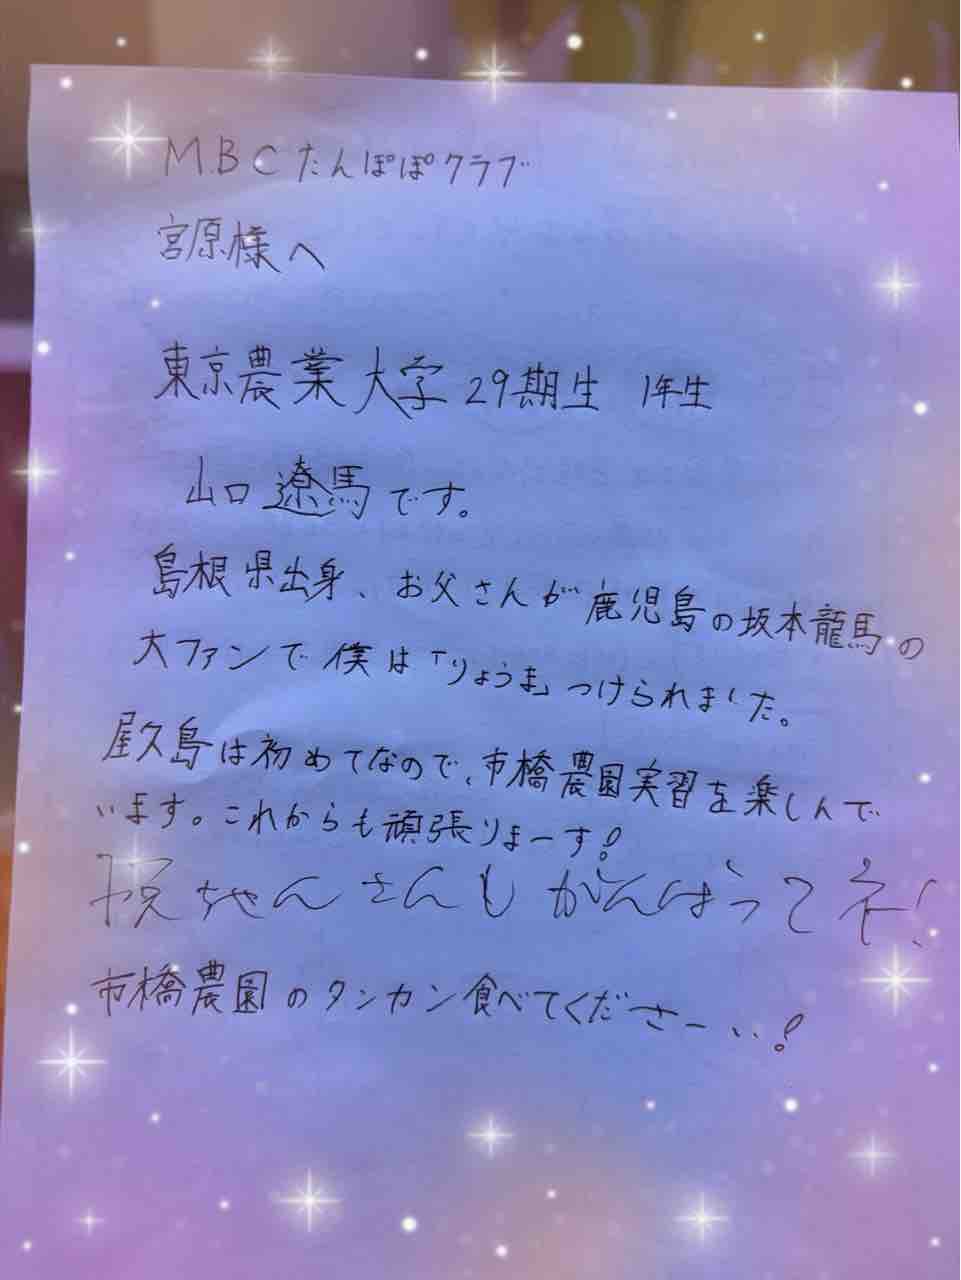 MBCたんぽぽクラブ
宮原様へ
東京農業大学 29期生 1年生
山口遼馬です。
島根県出身、お父さんが鹿児島の坂本龍馬の
大ファンで僕は「りょうま」つけられました。
屋久島は初めてなので、市橋農園実習を楽しんで
います。これからも頑張りまーす!
悦ちゃんさんもがんばってネ!
市橋農園のタンカン食べてくださーい!